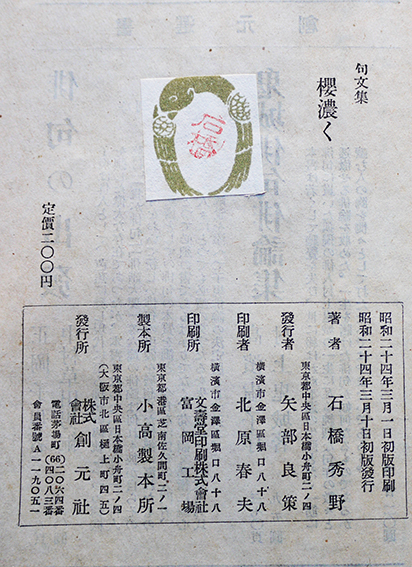 句文集
櫻濃く
石橋
定價二〇〇円
昭和二十四年三月一日初版印刷
昭和二十四年三月十日初版發行
著者 石橋秀野
東京都中央區日本橋小舟町二ノ四
發行者 矢部良策
橫濱市金澤區堀口八十八
印刷者 北原春夫
橫濱市金澤區堀口八十八
印刷所 文壽堂印刷株式會社
富岡工場
東京都港區芝南佐久間町二ノ一
製本所 小高製本所
東京都中央區日本橋小舟町二ノ四
(大阪市北區樋上町四五)
發行所 株式會社 創元社
電話茅場町(66)二〇六四番
四〇八三番
會員番號A一一九〇五一